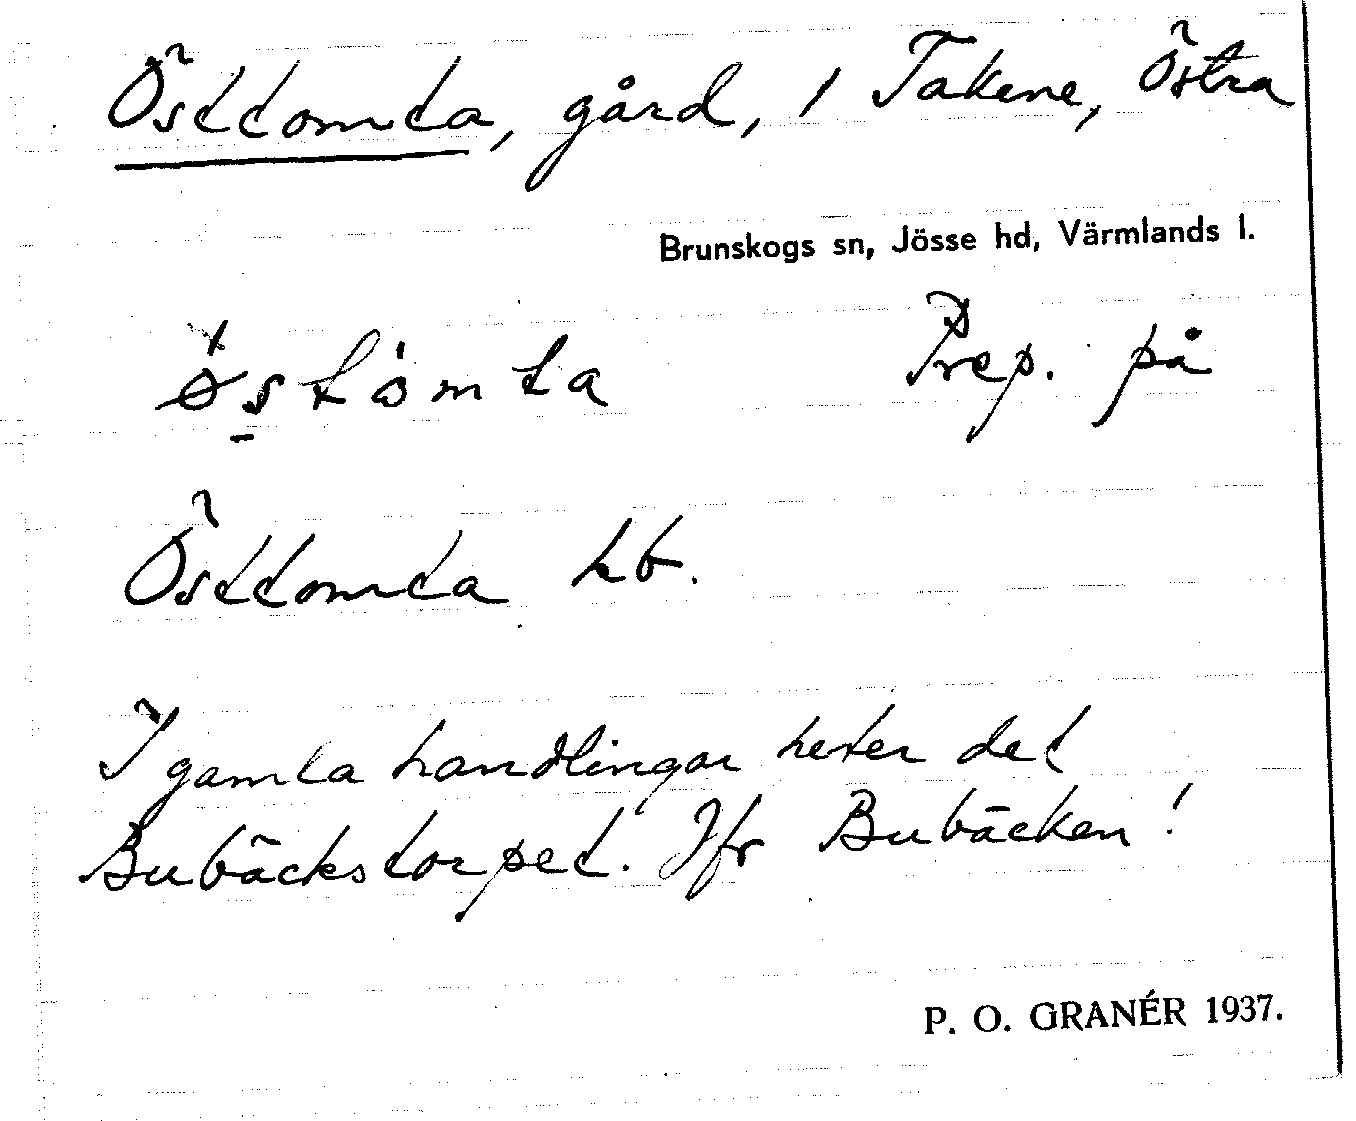 Östtomta, gård, 1 Takene, Östra
Brunskogs sn, Jösse hd, Värmlands l.
Prep. på
Östtomta kb.
I gamla handlingar heter det
Bubäckstorpet. Jfr Bubäcken!
P. O. GRANÉR 1937.